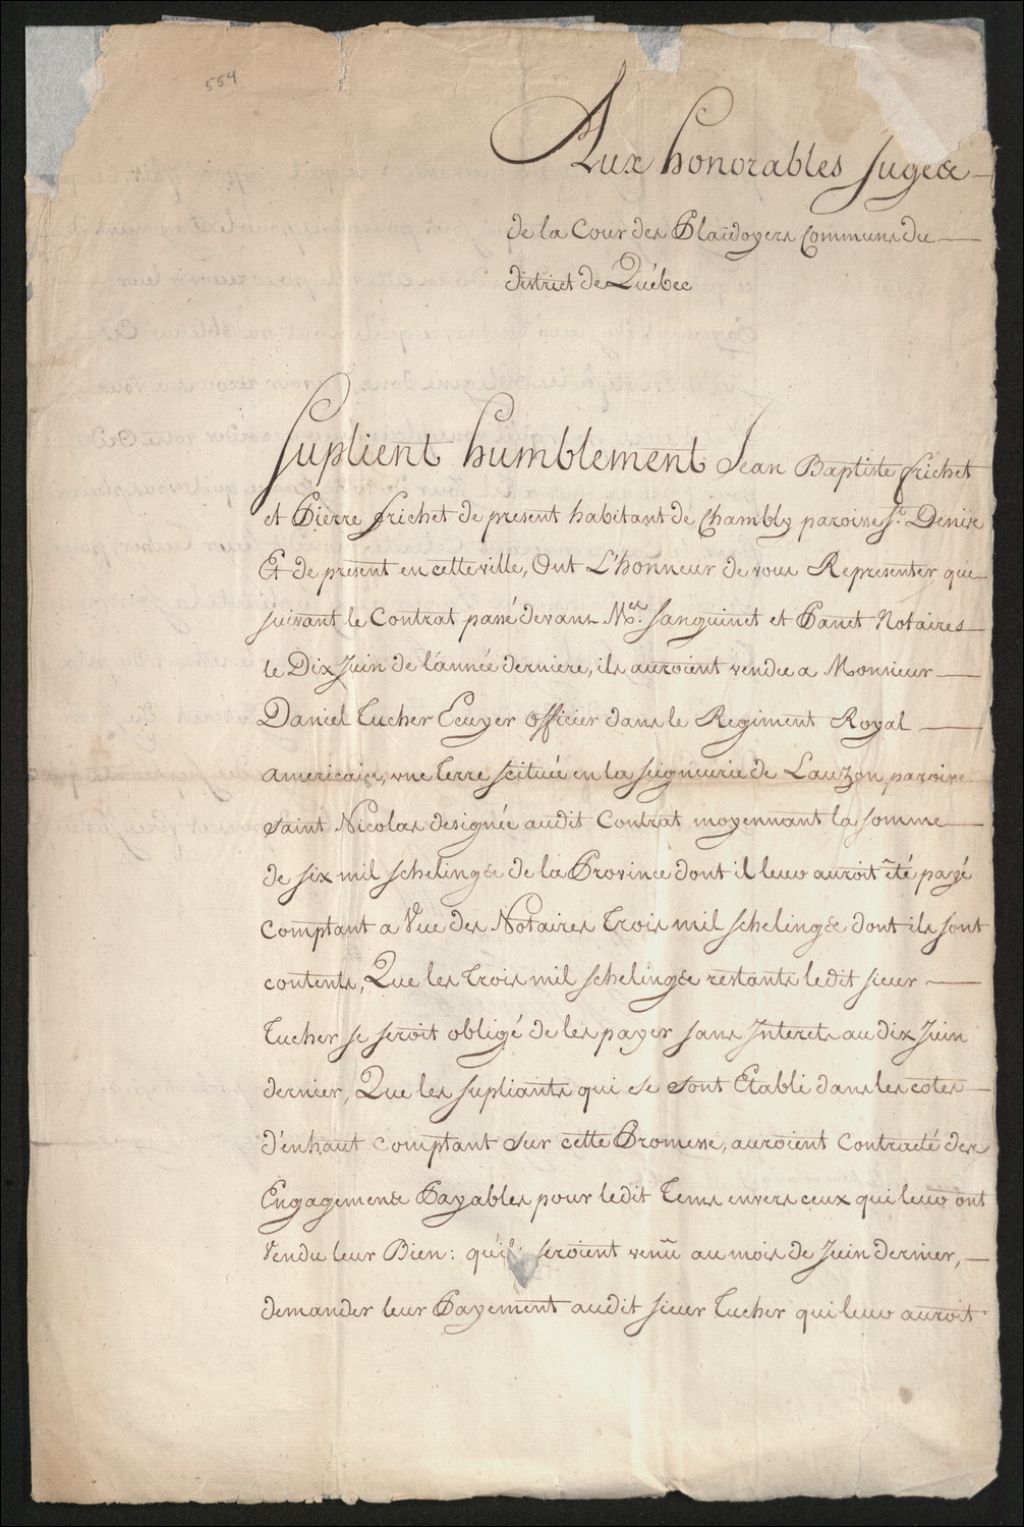 554
Aux honorables Juges
de la Cour des Plaidoyers Communs du
District de Québec
Suplient humblement Jean Baptiste frichet
et Pierre frichet de present habitant de Chambly paroisse St. Denis
Et de present en cette ville, Ont L'honneur de vous Representer que
suivant le Contrat passé devant Mes. Sanguinet et Panet Notaires
le Dix Juin de l'année derniere, ils auroient vendu a Monsieur
Daniel Tucher Ecuyer officier dans le Regiment Royal
americain, une terre scituée en la seigneurie de Lauzon, paroisse
Saint Nicolas designée audit Contrat moyennant la somme
de six mil schelings de la Province dont il leur auroit êté payé
comptant a Vue des Notaires Trois mil schelings dont ils sont
contents, Que les trois mil schelings restants ledit sieur
Tucher se seroit obligé de les payer sans Interets au dix Juin
dernier, Que les supliants qui se sont Etabli dans les cotes
d'enhaut comptant sur cette Promesse, auroient contracté des
Engagements Payables pour ledit tems envers ceux qui leur ont
Vendu leur Bien: qu'ils seroient venû au mois de Juin dernier,
demander leur Payement audit sieur Tucher qui leur auroit